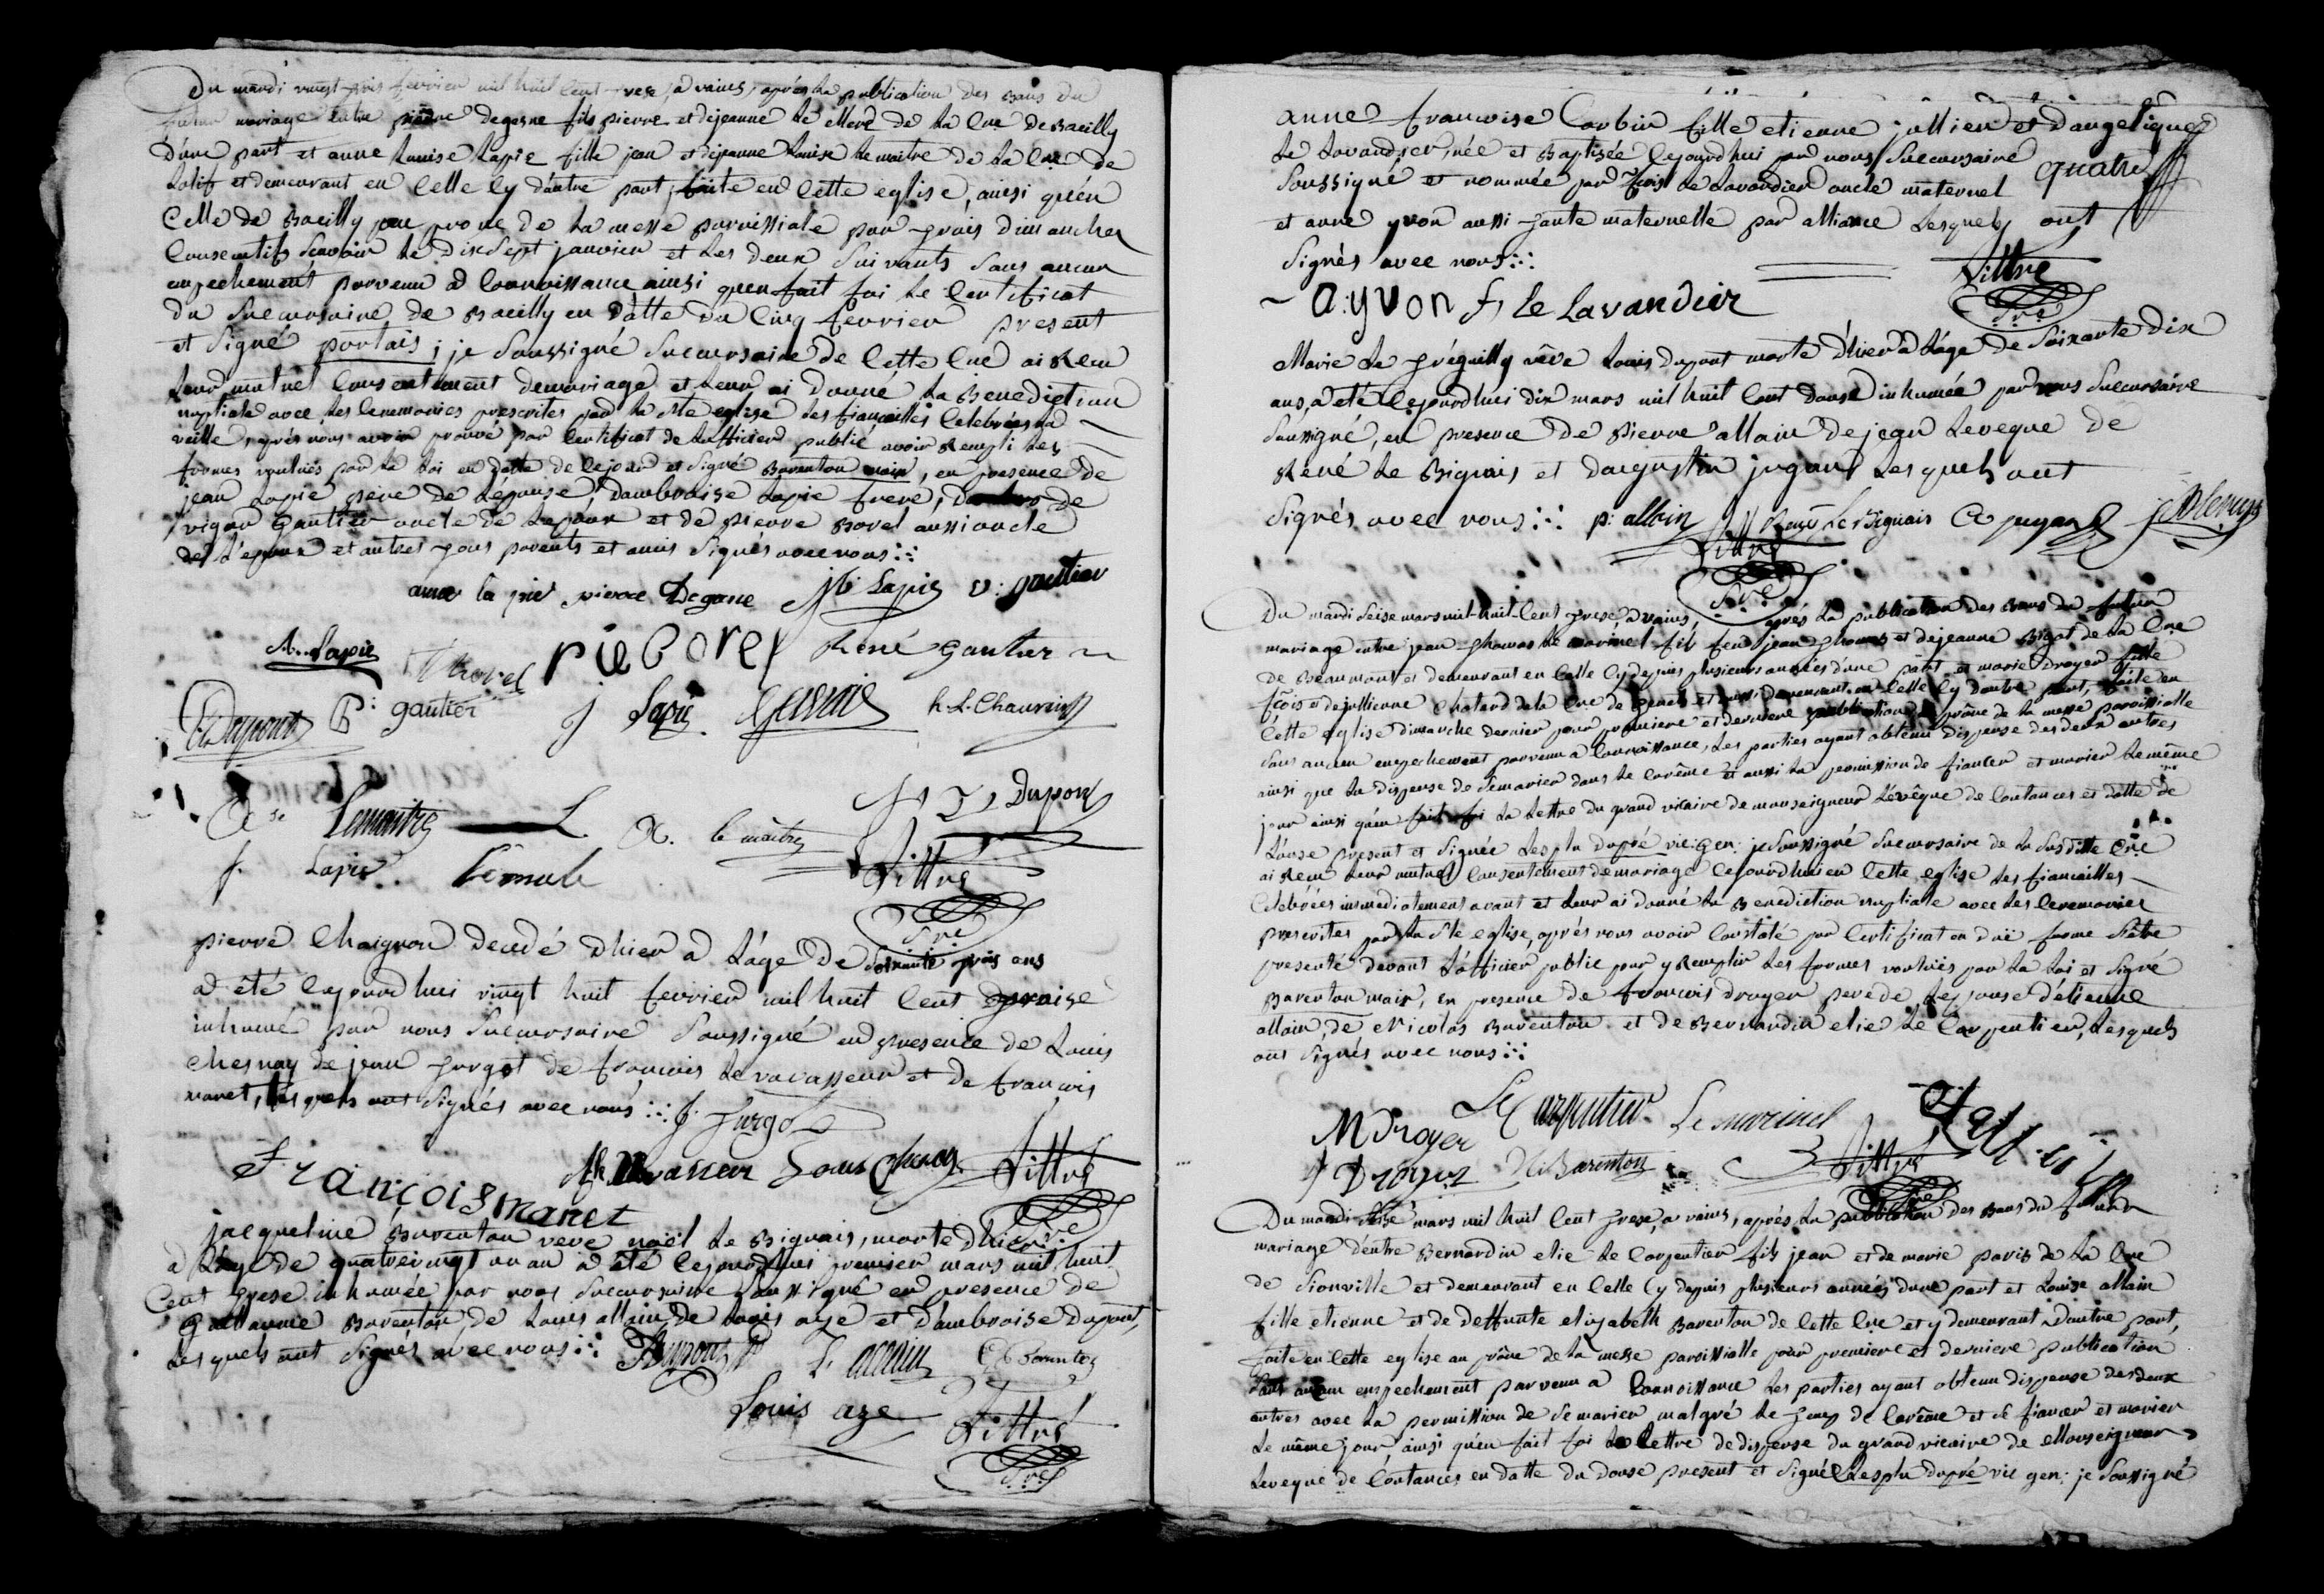 Du mardi vingt trois fevrier mil huit Cent treze, a vains, après la publication des Bans du
futur mariage entre pierre degasne fils pierre et de jeanne de la Cne de Bacilly
d'une part et anne Louise Lapie fille jean et de jeanne Louise le maitre de la Cne de
Lolif et demeurant en Celle Cy d'autre part, faite en Cette eglise, ainsi qu'en
Celle de Bacilly au prone de la messe parroissiale par trois dimanches
Consecutifs Scavoir le dix Sept janvier et les deux Suivants Sans aucun
empechement parvenu a Connoissance ainsi qu'en fait foi le Certificat
du Succursaire de Bacilly en datte du Cinq fevrier present
et Signé portais; je Soussigné Succursaire de Cette Cne ai Recu
leur mutuel Consentement de mariage et leur ai donné la Benediction
nuptiale avec les Ceremonies prescrites par la Ste eglise les fiançailles Celebrées la
veille, après nous avoir prouvé par Certificat de l'officier public avoir Rempli les
formes voulues par la loi en datte de Cejour et Signé Barenton mair, en presence de
jean Lapie père de l'épouse, d'ambroise Lapie frere, de
vigor Gautier oncle de l'epoux et de pierre Borel aussi oncle
de L'epoux et autres tous parents et amis Signés avec nous
anne la pie pierre Degasne Lapie v: gautier
A. Lapie pie Borel René Gautier
Dupont P: gautier J Lapie Gervais h. L. Chauvin
Lemaitre le maitre Dupont
f. Lapie Tittre
Sre
pierre Chaignon decedé d'hier a L'age de Soixante trois ans
a été Cejourd'hui vingt huit fevrier mil huit Cent treise
inhumé par nous Succursaire Soussigné en presence de Louis
Chesnay de jean turgot de francois le vavasseur et de francois
manet, lesquels ont Signés avec nous J. turgot
vavasseur Louis Chenay Tittre
François manet Sre
jacqueline Barenton veve noël le Bignais, morte d'hier
a L'age de quatrevingt un an a été Cejourd'hui premier mars mil huit
Cent treze inhumée par nous Succursaire Soussigné en presence de
Guillaume Barenton de Louis allain, de Louis aze et d'ambroise Dupont,
Lesquels ont Signés avec nous Dupont L. allain Barenton
Louis aze Tittre
Sre
anne francoise Corbin fille etienne jullien et d'angelique
le Lavandier née et Baptisée Cejourd'hui par nous Succursaire quatre
Soussigné et nommée par frcois le Lavandier oncle maternel
et anne yvon aussi tante maternelle par alliance Lesquels ont
Signés avec nous Tittre
a:yvon f, le Lavandier Sre
Marie le veve Louis dupont morte d'hier a L'age de Soixante dix
ans, a été Cejourd'hui dix mars mil huit Cent inhumée par nous Succursaire
Soussigné, en presence de pierre allain de jean Leveque de
René le Bignais et d'augustin jugan Lesquels ont
Signés avec nous p: allain René Le Bignais jugan
Tittre
Sre
Du mardi Seise mars mil-huit-Cent treze, a vains, après la publication des Bans du futur
mariage entre jean thomas le marinel fils feu jean thomas et de jeanne Bigot de la Cne
de Beaumont et demeurant en Celle Cy depuis plusieurs années d'une part et marie droyer fille
frcois et de jullienne Chatard de la Cne de et aussi demeurant en Celle Cy d'autre part, faite en
Cette eglise dimanche dernier pour premiere et derniere publication au prône de la messe paroissialle
Sans aucun empechement parvenu a Connoissance, Les parties ayant obtenu dispense des deux autres
ainsi que la dispense de Se marier dans le Carême et aussi la permission de fiancer et marier le même
jour ainsi qu'en fait foi la lettre du grand vicaire de monseigneur L'évêque de Coutances en datte de
Douse present et Signée Lesplu dupré vic: gen: je Soussigné Succursaire de la Susditte Cne
ai Recu leur mutuel Consentement de mariage Cejourd'hui en Cette eglise les fiancailles
Celebrées immediatement avant et leur ai donné la Benediction nuptiale avec les Ceremonies
prescrites par la Ste eglise, après nous avoir Constaté par Certificat en duë forme S'être
presenté devant L'officier public pour y Remplir les formes voulües par la loi et Signé
Barenton mair, en presence de francois droyer pere de L'epouse d'etienne
allain, de Nicolas Barenton et de Bernardin elie le Carpentier, Lesquels
ont Signés avec nous
M Droyer Le Carpentier Le marinel
f Droyer N Barenton Tittre
Sre
Du mardi Seise mars mil huit Cent treze, a vains, après la publication des Bans du futur
mariage d'entre Bernardin elie le Carpentier fils jean et de marie paris de la Cne
de Sionville et demeurant en Celle Cy depuis plusieurs années d'une part et Louise allain
fille etienne et de deffunte elizabeth Barenton de Cette Cne et y demeurant D'autre part,
faite en Cette eglise au prône de la messe paroissialle pour premiere et derniere publication
Sans aucun empechement parvenu a Connoissance Les parties ayant obtenu dispense des deux
autres avec la permission de Se marier malgré le tems de Carême et de fiancer et marier
le même jour ainsi qu'en fait foi la lettre de dispense du grand vicaire de Monseigneur
L'eveque de Coutances en datte du douse present et Signé Lesplu dupré vic gen: je Soussigné